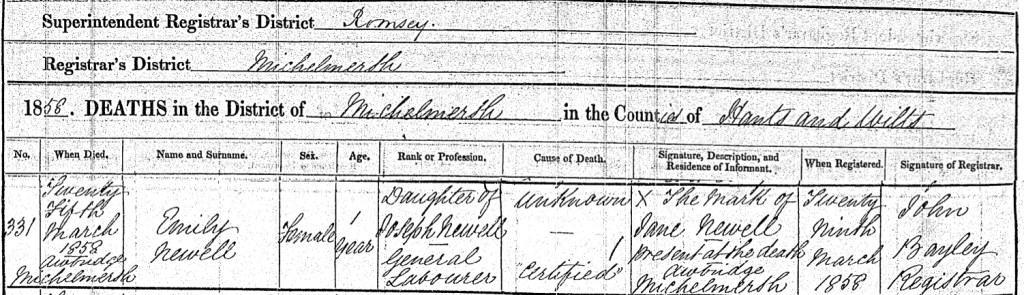 Superintendent Registrar's District Romsey.
Registrar's District Michelmersh
1858. DEATHS in the District of Michelmersh in the Counties of Hants and Wilts
No. When Died. Name and Surname. Sex. Age. Rank or Profession. Cause of Death. Signature, Description, and Residence of Informant. When Registered. Signature of Registrar.
331
Twenty
Fifth
March
1858
Awbridge
Michelmersh
Emily
Newell
Female
1
Year
Daughter of
Joseph Newell
General
Labourer
Unknown
"Certified"
X The Mark of
Jane Newell
present at the death
Awbridge
Michelmersh
Twenty
Ninth
March
1858
John
Bayley
Registrar